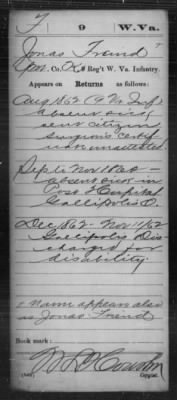 F 9 W.Va.
Jonas Freind
Co. 9 Reg't W. Va. Infantry.
Appears on Returns as follows:
Aug 1862 (9 Va Inf)
absent sick,
sent citizen
surgeon's certif
icate unattested.
Sept to Nov 1862 —
absent sick in
Post Hospital
Gallipolis O.
Dec 1862 - Nov 11/62
Gallipolis Dis
charged for
disability.
name appears also
as Jonas Friend
Book mark:
Copyist.